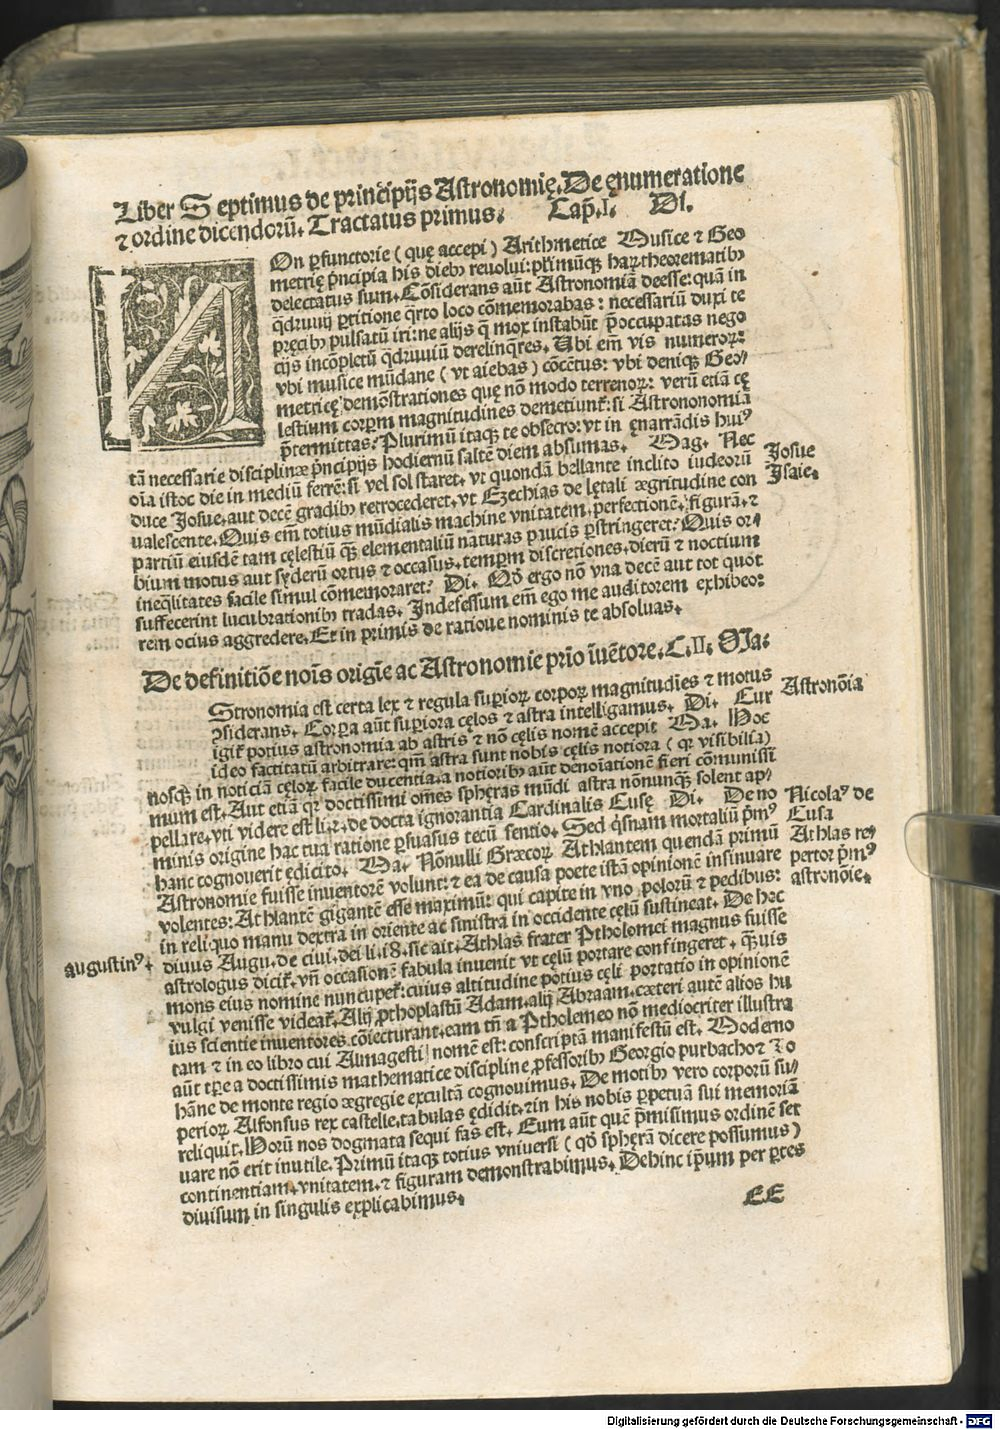 Liber Septimus de principijs Astronomię. De ęnumeratione
⁊ ordine dicendorũ. Tractatus primus. Cap̃. I. DI.
NOn ꝑfunctorie (quę accepi) Arithmetice Musice ⁊ Geo
metrię p̃ncipia his dieb₉ reuolui: plurimũqꝫ haꝝ theorematib₉
delectatus sum. Cõsiderans aũt Astronomiã deesse: quã in
q̃druuij ꝑtitione q̃rto loco cõmemorabas: necessariũ duxi te
pręcib₉ pulsatũ iri: ne alijs q̃ mox instabũt p̃occupatas nego
cijs incõpletũ q̃druuiũ derelinq̃res. Ubi em̃ vis numeroꝝ:
vbi musice mũdane (vt aiebas) cõcẽtus: vbi deniqꝫ Geo⸗
metricę demõstrationes quę nõ modo terrenoꝝ: verũ etiã cę
lestium corpoꝝ magnitudines demetiunt᷑: si Astrononomiã
p̃termittas? Plurimũ itaqꝫ te obsecro: vt in ęnarrãdis hui⁹
tã necessarie disciplinæ p̃ncipijs hodiernũ saltẽ diem absumas. Mag. Nec
oĩa istoc die in mediũ ferrẽ: si vel sol staret. vt quondã bellante inclito iudeorũ
duce Josue. aut decẽ gradib₉ retrocederet. vt Ezechias de lętali ægritudine con
ualescente. Quis em̃ totius mũdialis machine vnitatem. perfectionẽ. figurã. ⁊
partiũ eiusdẽ tam cęlestiũ q̃ꝫ elementaliũ naturas paucis ꝑstringeret? Quis or⸗
bium motus aut sẏderũ ortus ⁊ occasus. tempoꝝ discretiones. dierũ ⁊ noctium
ineq̃litates facile simul cõmemoraret? Di. Qđ ergo nõ vna decẽ aut tot quot
suffecerint lucubrationib₉ tradas. Indefessum em̃ ego me auditorem exhibeo:
rem ocius aggredere. Et in primis de ratione nominis te absoluas.
Josue
Isaie.
De definitiõe noĩs origĩe ac Astronomie prĩo ĩuẽtore. C. II. Ma.
Stronomia est certa lex ⁊ regula superioꝝ corpoꝝ magnitudĩes ⁊ motus
ꝯsiderans. Corpora aũt superiora cęlos ⁊ astra intelligamus. Di. Cur
igit᷑ potius astronomia ab astris ⁊ nõ cęlis nomẽ accepit Ma. Hoc
ideo factitatũ arbitrare: qm̃ astra sunt nobis cęlis notiora (qꝛ visibilia)
nosqꝫ in noticiã cęloꝝ facile ducentia. a notiorib₉ aũt denoĩationẽ fieri cõmunissi
mum est. Aut etiã qꝛ doctissimi om̃es sphęras mũdi astra nõnunqꝫ solent ap⸗
pellare. vti videre est li. 2. de docta ignorantia Cardinalis Cusę Di. De no
minis origine hac tua ratione ꝑsuasus tecũ sentio. Sed q̃snam mortaliũ p̃m⁹
hanc cognouerit ędicito. Ma. Nõnulli Græcoꝝ Athlantem quendã primũ
Astronomie fuisse inuentorẽ volunt: ⁊ ea de causa poete istã opinionẽ insinuare
volentes: Athlantẽ gigantẽ esse maximũ: qui capite in vno poloruũ ⁊ pedibus:
in reliquo manu dextra in oriente ac sinistra in occidente cęlũ sustineat. De hoc
diuus Augu. de ciui. dei li. 18. sic ait. Athlas frater Ptholomei magnus fuisse
astrologus dicit᷑. vñ occasionẽ fabula inuenit vt cęlũ portare confingeret. q̃ꝫuis
mons eius nomine nuncupet᷑: cuius altitudine potius cęli portatio in opinionẽ
vulgi venisse videat᷑. Alij ꝓthoplastũ Adam. alij Abraam. cæteri autẽ alios hu
ius scientie inuentores cõiecturant. eam tñ a Ptholemeo nõ mediocriter illustra
tam ⁊ in eo libro cui Almagesti nomẽ est: conscriptã manifestũ est. Moderno
aũt tp̃re a doctissimis mathematice discipline ꝓfessorib₉ Georgio purbacho ⁊ Jo
hãne de monte regio ægregie excultã cognouimus. De motib₉ vero corporũ su⸗
perioꝝ Alfonsus rex castelle. tabulas ędidit. ⁊ in his nobis ꝑpetuã sui memoriã
reliquit. Horũ nos dogmata sequi fas est. Eum aũt quẽ p̃misimus ordinẽ ser
uare nõ erit inutile. Primũ itaqꝫ totius vniuersi (qđ sphęrã dicere possumus)
continentiam. vnitatem. ⁊ figuram demonstrabimus. Dehinc ip̃um per ꝑtes
diuisum in singulis explicabimus.
Astronõia
Nicola⁹ de
Cusa
Athlas re⸗
pertor p̃m⁹
astronõie.
augustin⁹.
EE
Digitalisierung gefördert durch die Deutsche Forschungsgemeinschaft - DFG